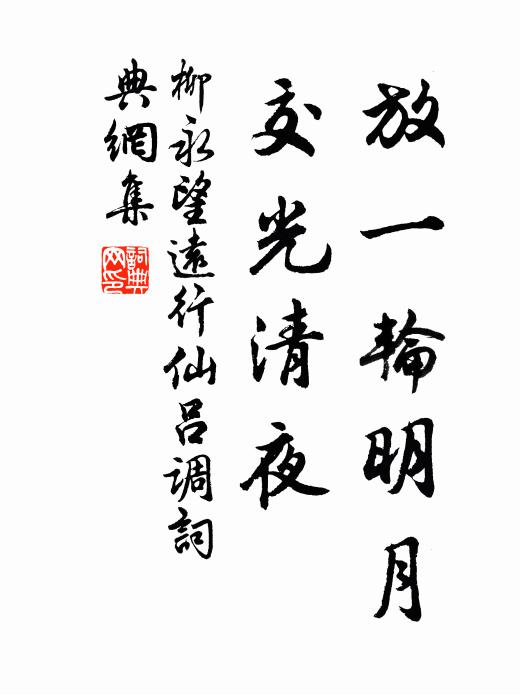 放一輪明月
交光清夜
柳永望遠行仙呂調詞
典網集
詞典
网印